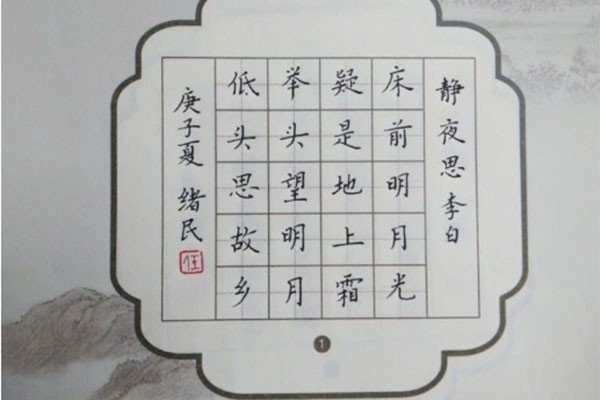 静夜思 李白
床前明月光
疑是地上霜
举头望明月
低头思故乡
庚子夏 绪民
1